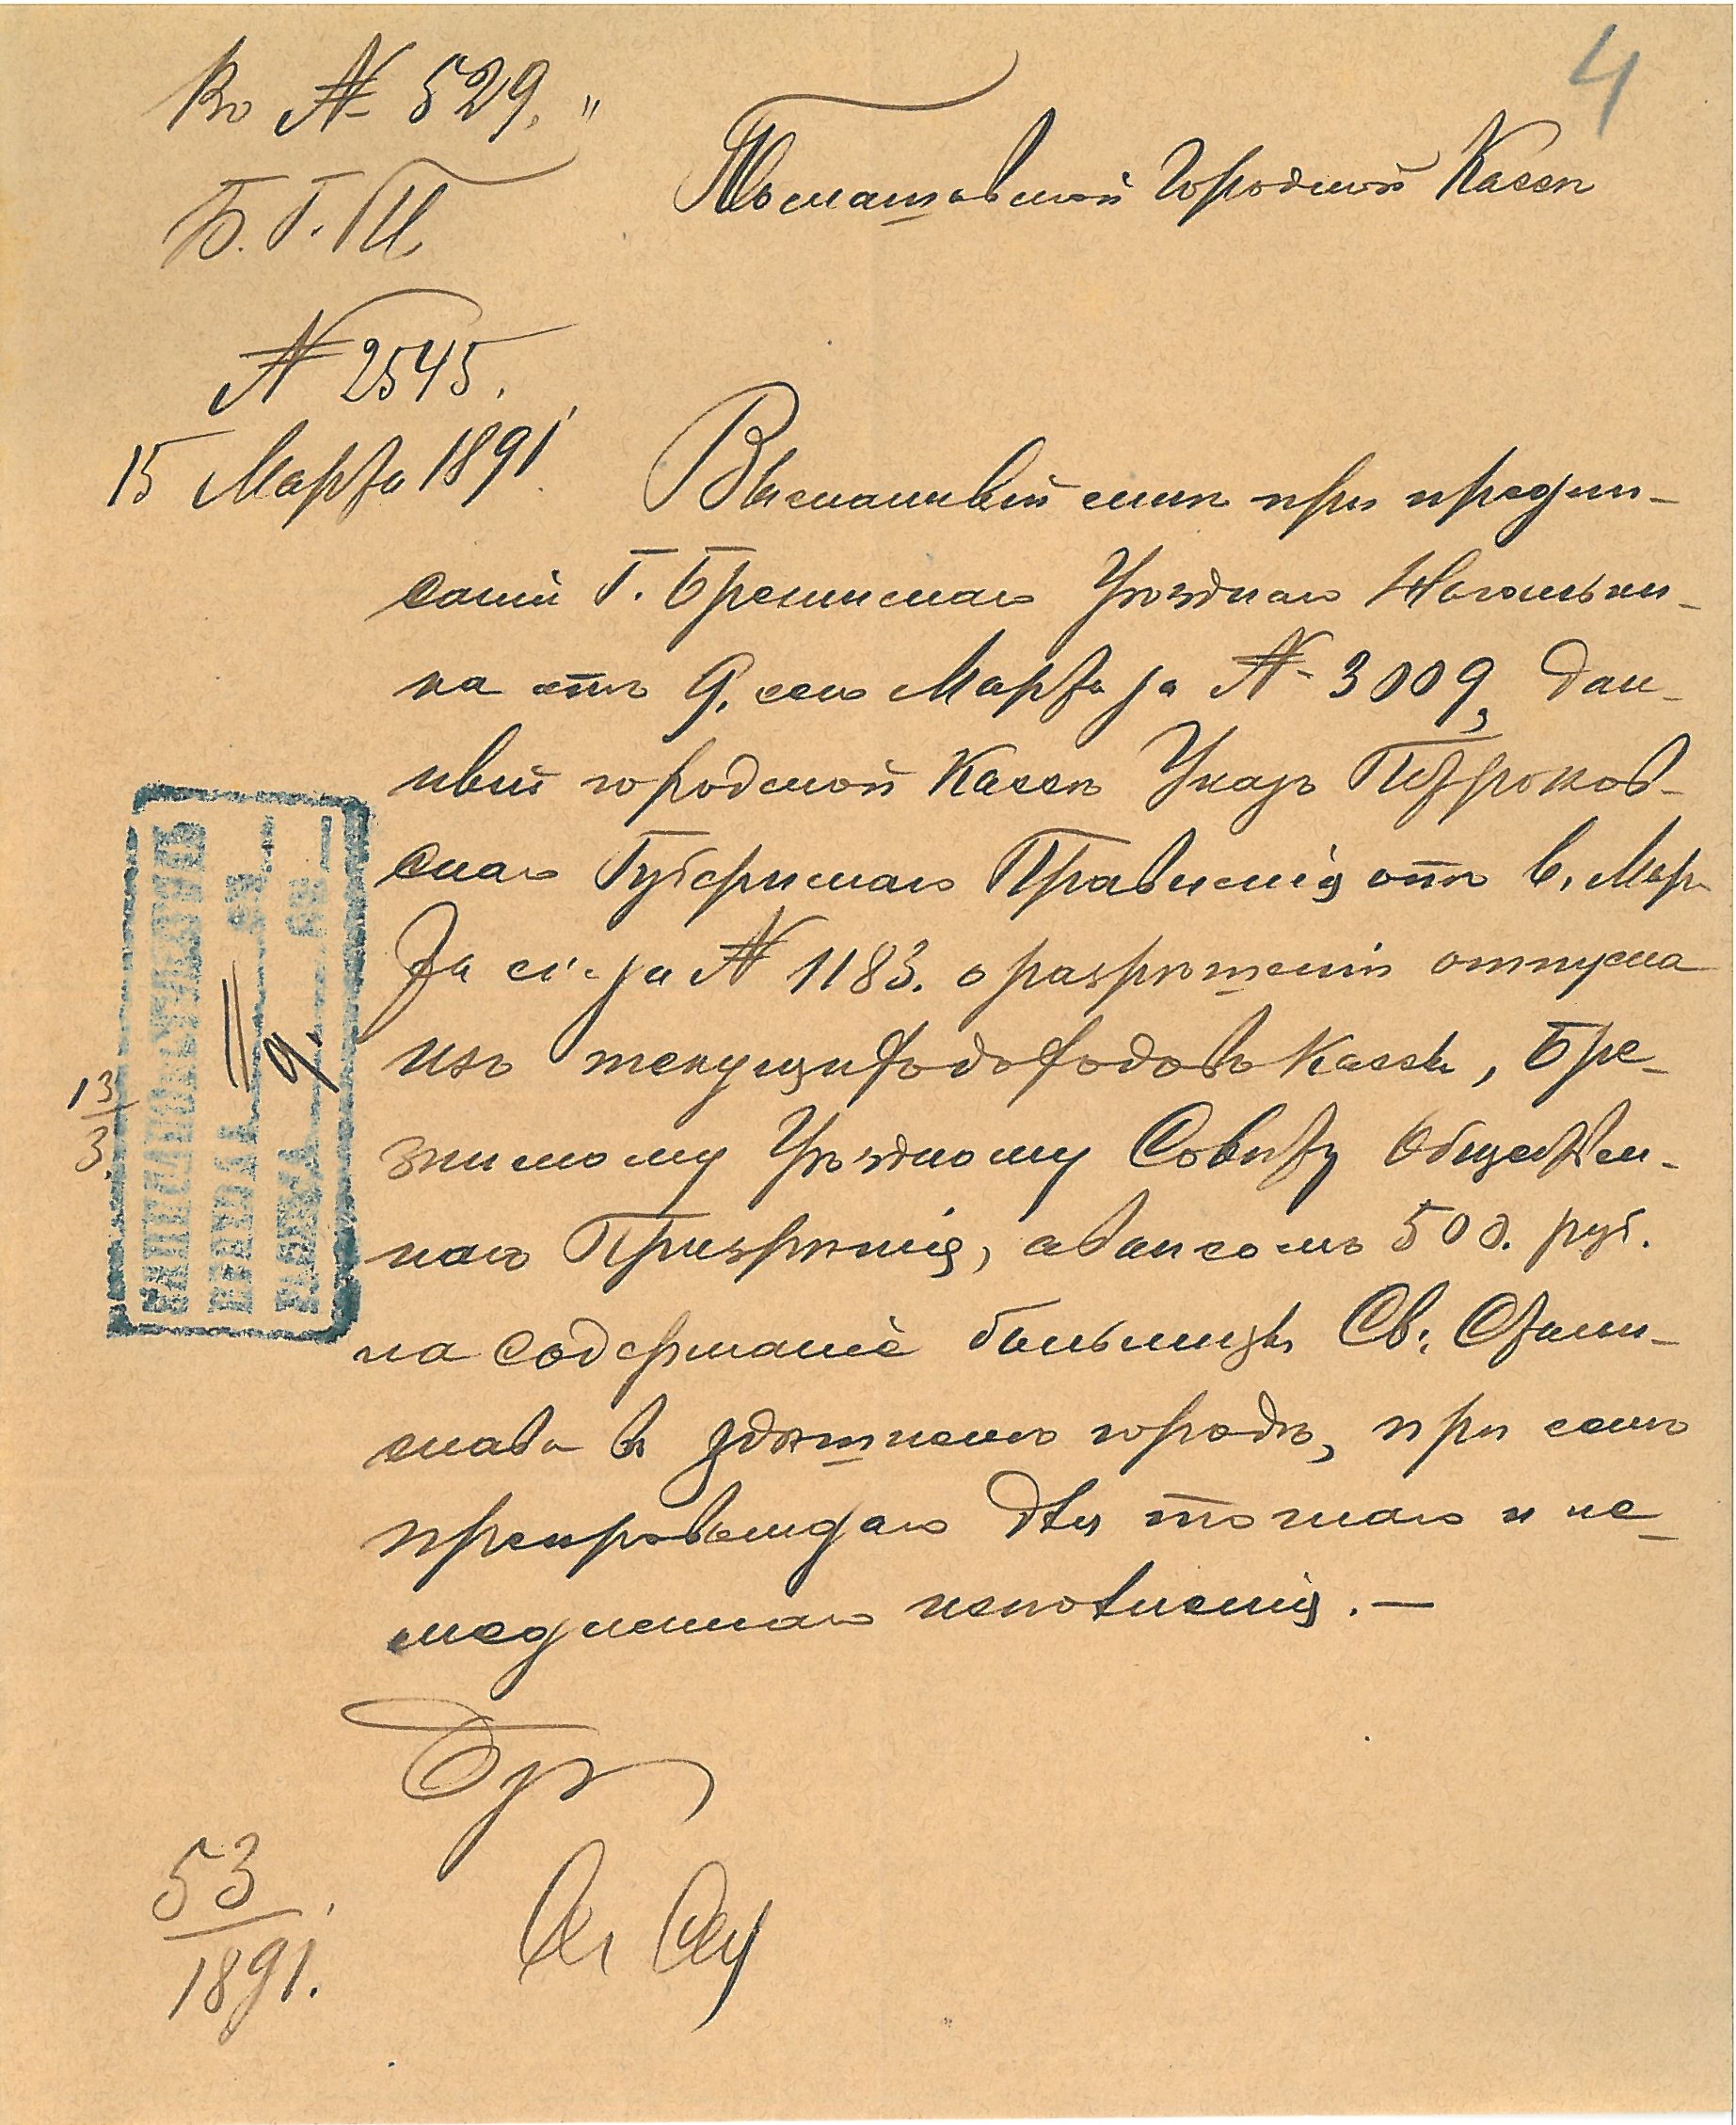 4
Ко № 529.
Б. Г. М.
Томашовской Городской Кассѣ
№ 2545.
15 Марта 1891
Высланный мнѣ при предпи-
саніи Г. Брезинскаго Уѣзднаго Начальни-
ка отъ 9. сего Марта за № 3009, дан-
ный городской Кассѣ Указъ Петроков-
скаго Губернскаго Правленія отъ 6. Мар-
та с. г. за № 1183. о разрѣшеніи отпуска
изъ текущихъ доходовъ Кассы, Бре-
зинскому Уѣздному Совѣту Обществен-
наго Призрѣнія, авансомъ 500. руб.
на содержаніе больницы Св. Стани-
слава въ здѣшнемъ городѣ, при семъ
препровождаю для точнаго и не-
медленнаго исполненія.—
13/3
II
9.
53
1891.